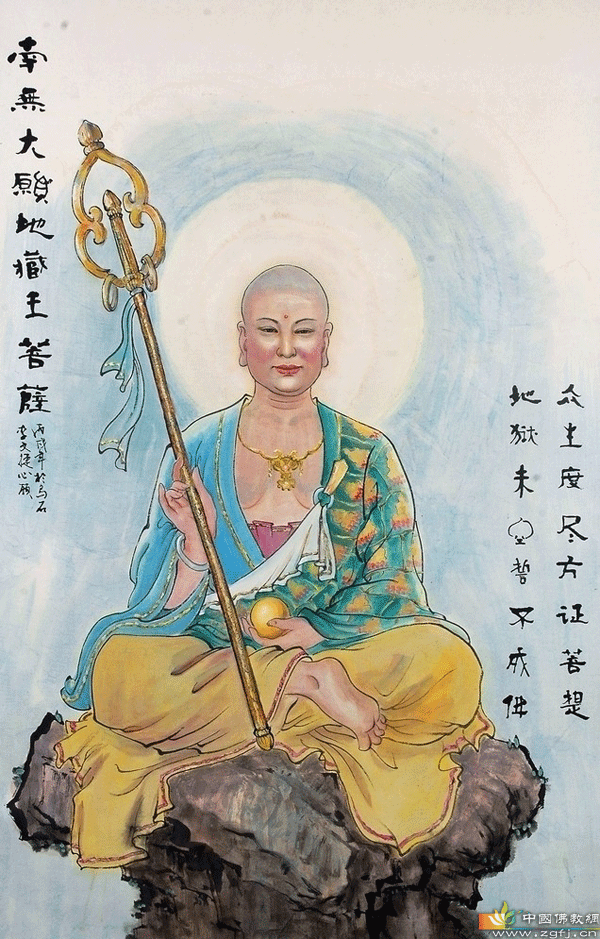 南無大願地藏王菩薩
丙戌年於石
李文心願
众生度尽方证菩提
地狱未空誓不成佛
中國佛教網
www.zgfj.cn